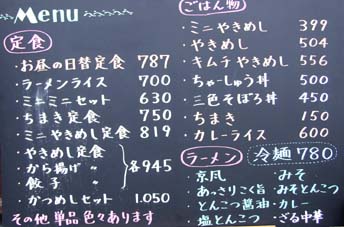 Menu
定食
・お昼の日替定食 787
・ラーメンライス 700
・ミニミニセット 630
・ちまき定食 750
・ミニやきめし定食 819
・やきめし定食
・から揚げ 〃
・餃子 〃
各945
・かつめしセット 1.050
その他 単品 色々あります
ごはん物
・ミニやきめし 399
・やきめし 504
・キムチやきめし 556
・ちゃーしゅう丼 500
・三色そぼろ丼 450
・ちまき 150
・カレーライス 600
ラーメン 冷麺 780
・京風 ・みそ
・あっさりこく旨 ・みそとんこつ
・とんこつ醤油 ・カレー
・塩とんこつ ・ざる中華